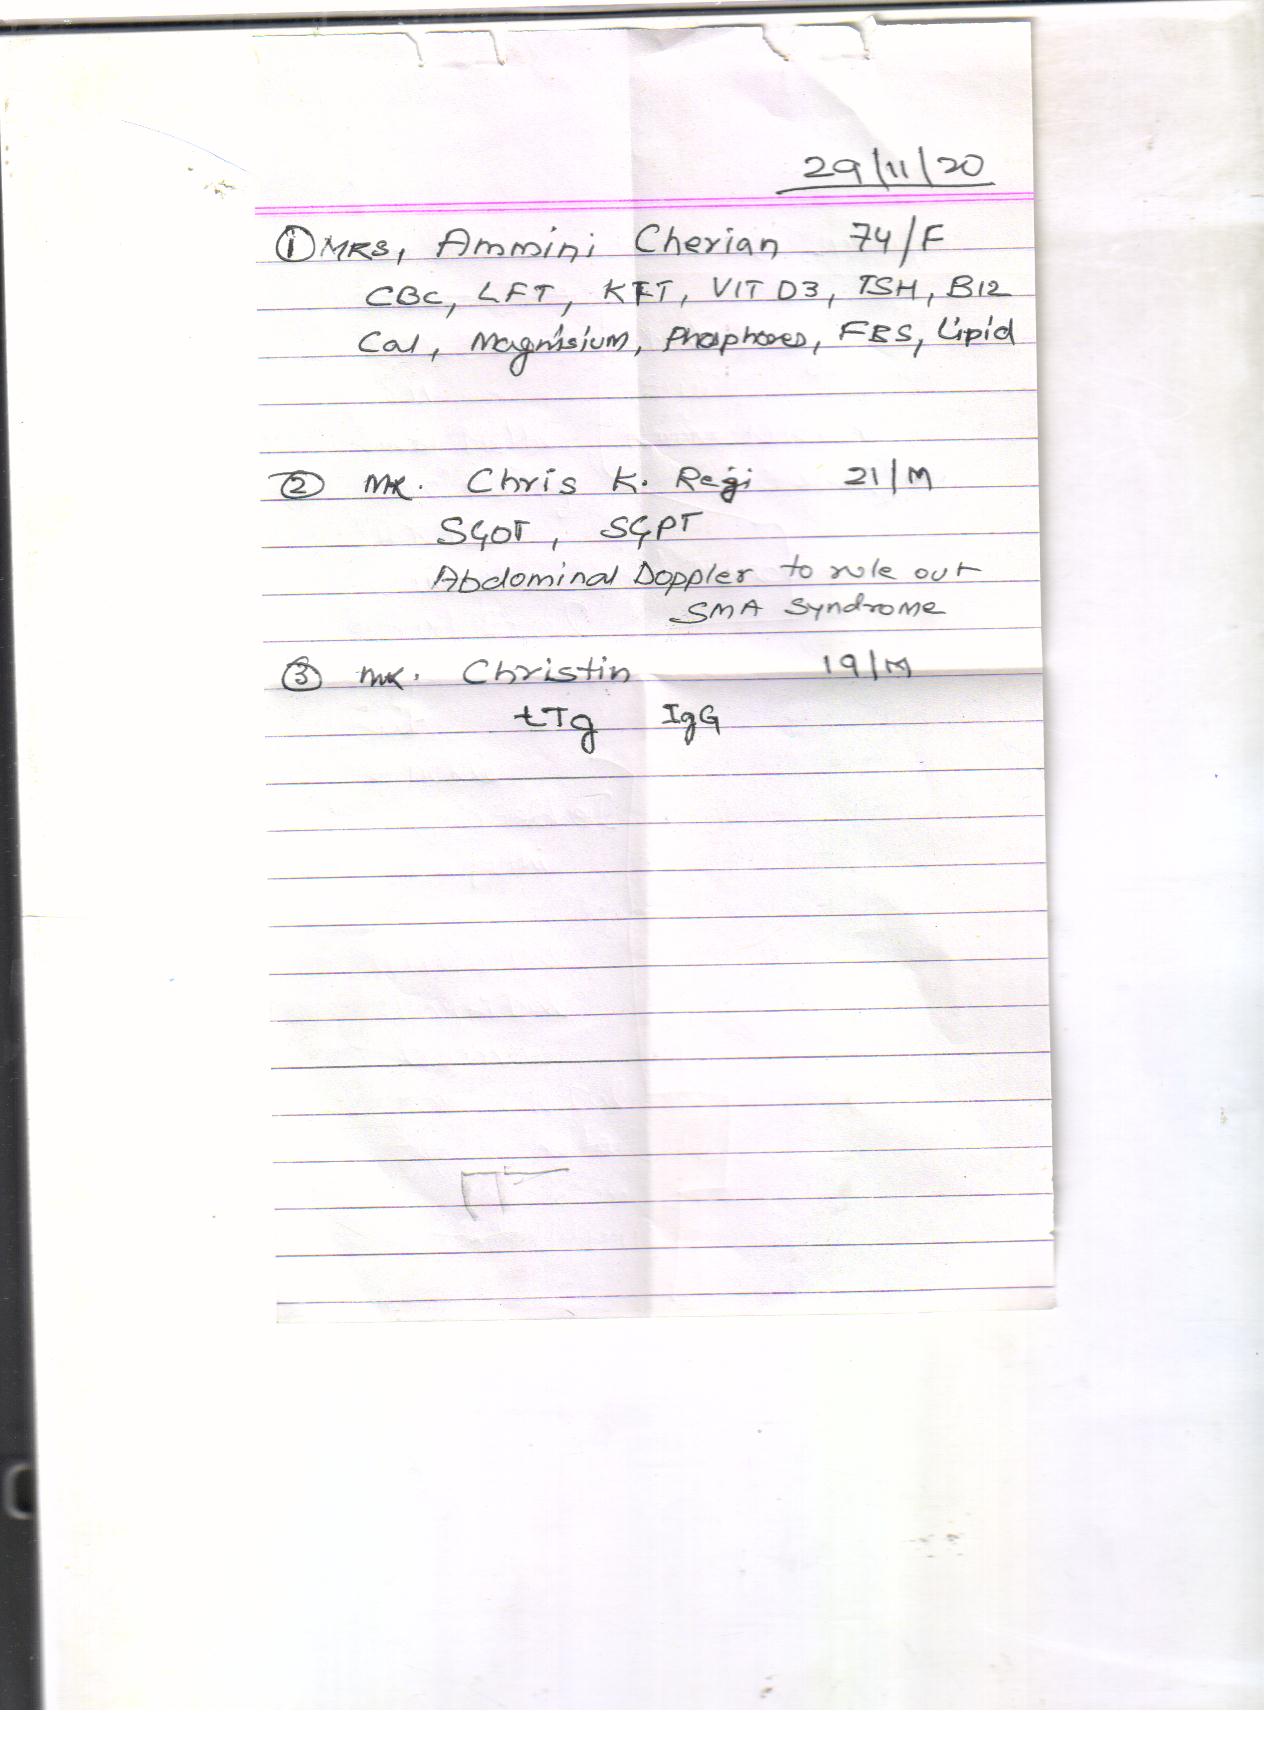 29/11/20
① MRS, Ammini Cherian 74/F
CBC, LFT, KFT, VIT D3, TSH, B12
Cal, Magnisium, Phosphores, FBS, Lipid
② MR. Chris K. Regi 21/M
SGOT, SGPT
Abdominal Doppler to rule out
SMA Syndrome
③ MR. Christin 19/M
tTg IgG